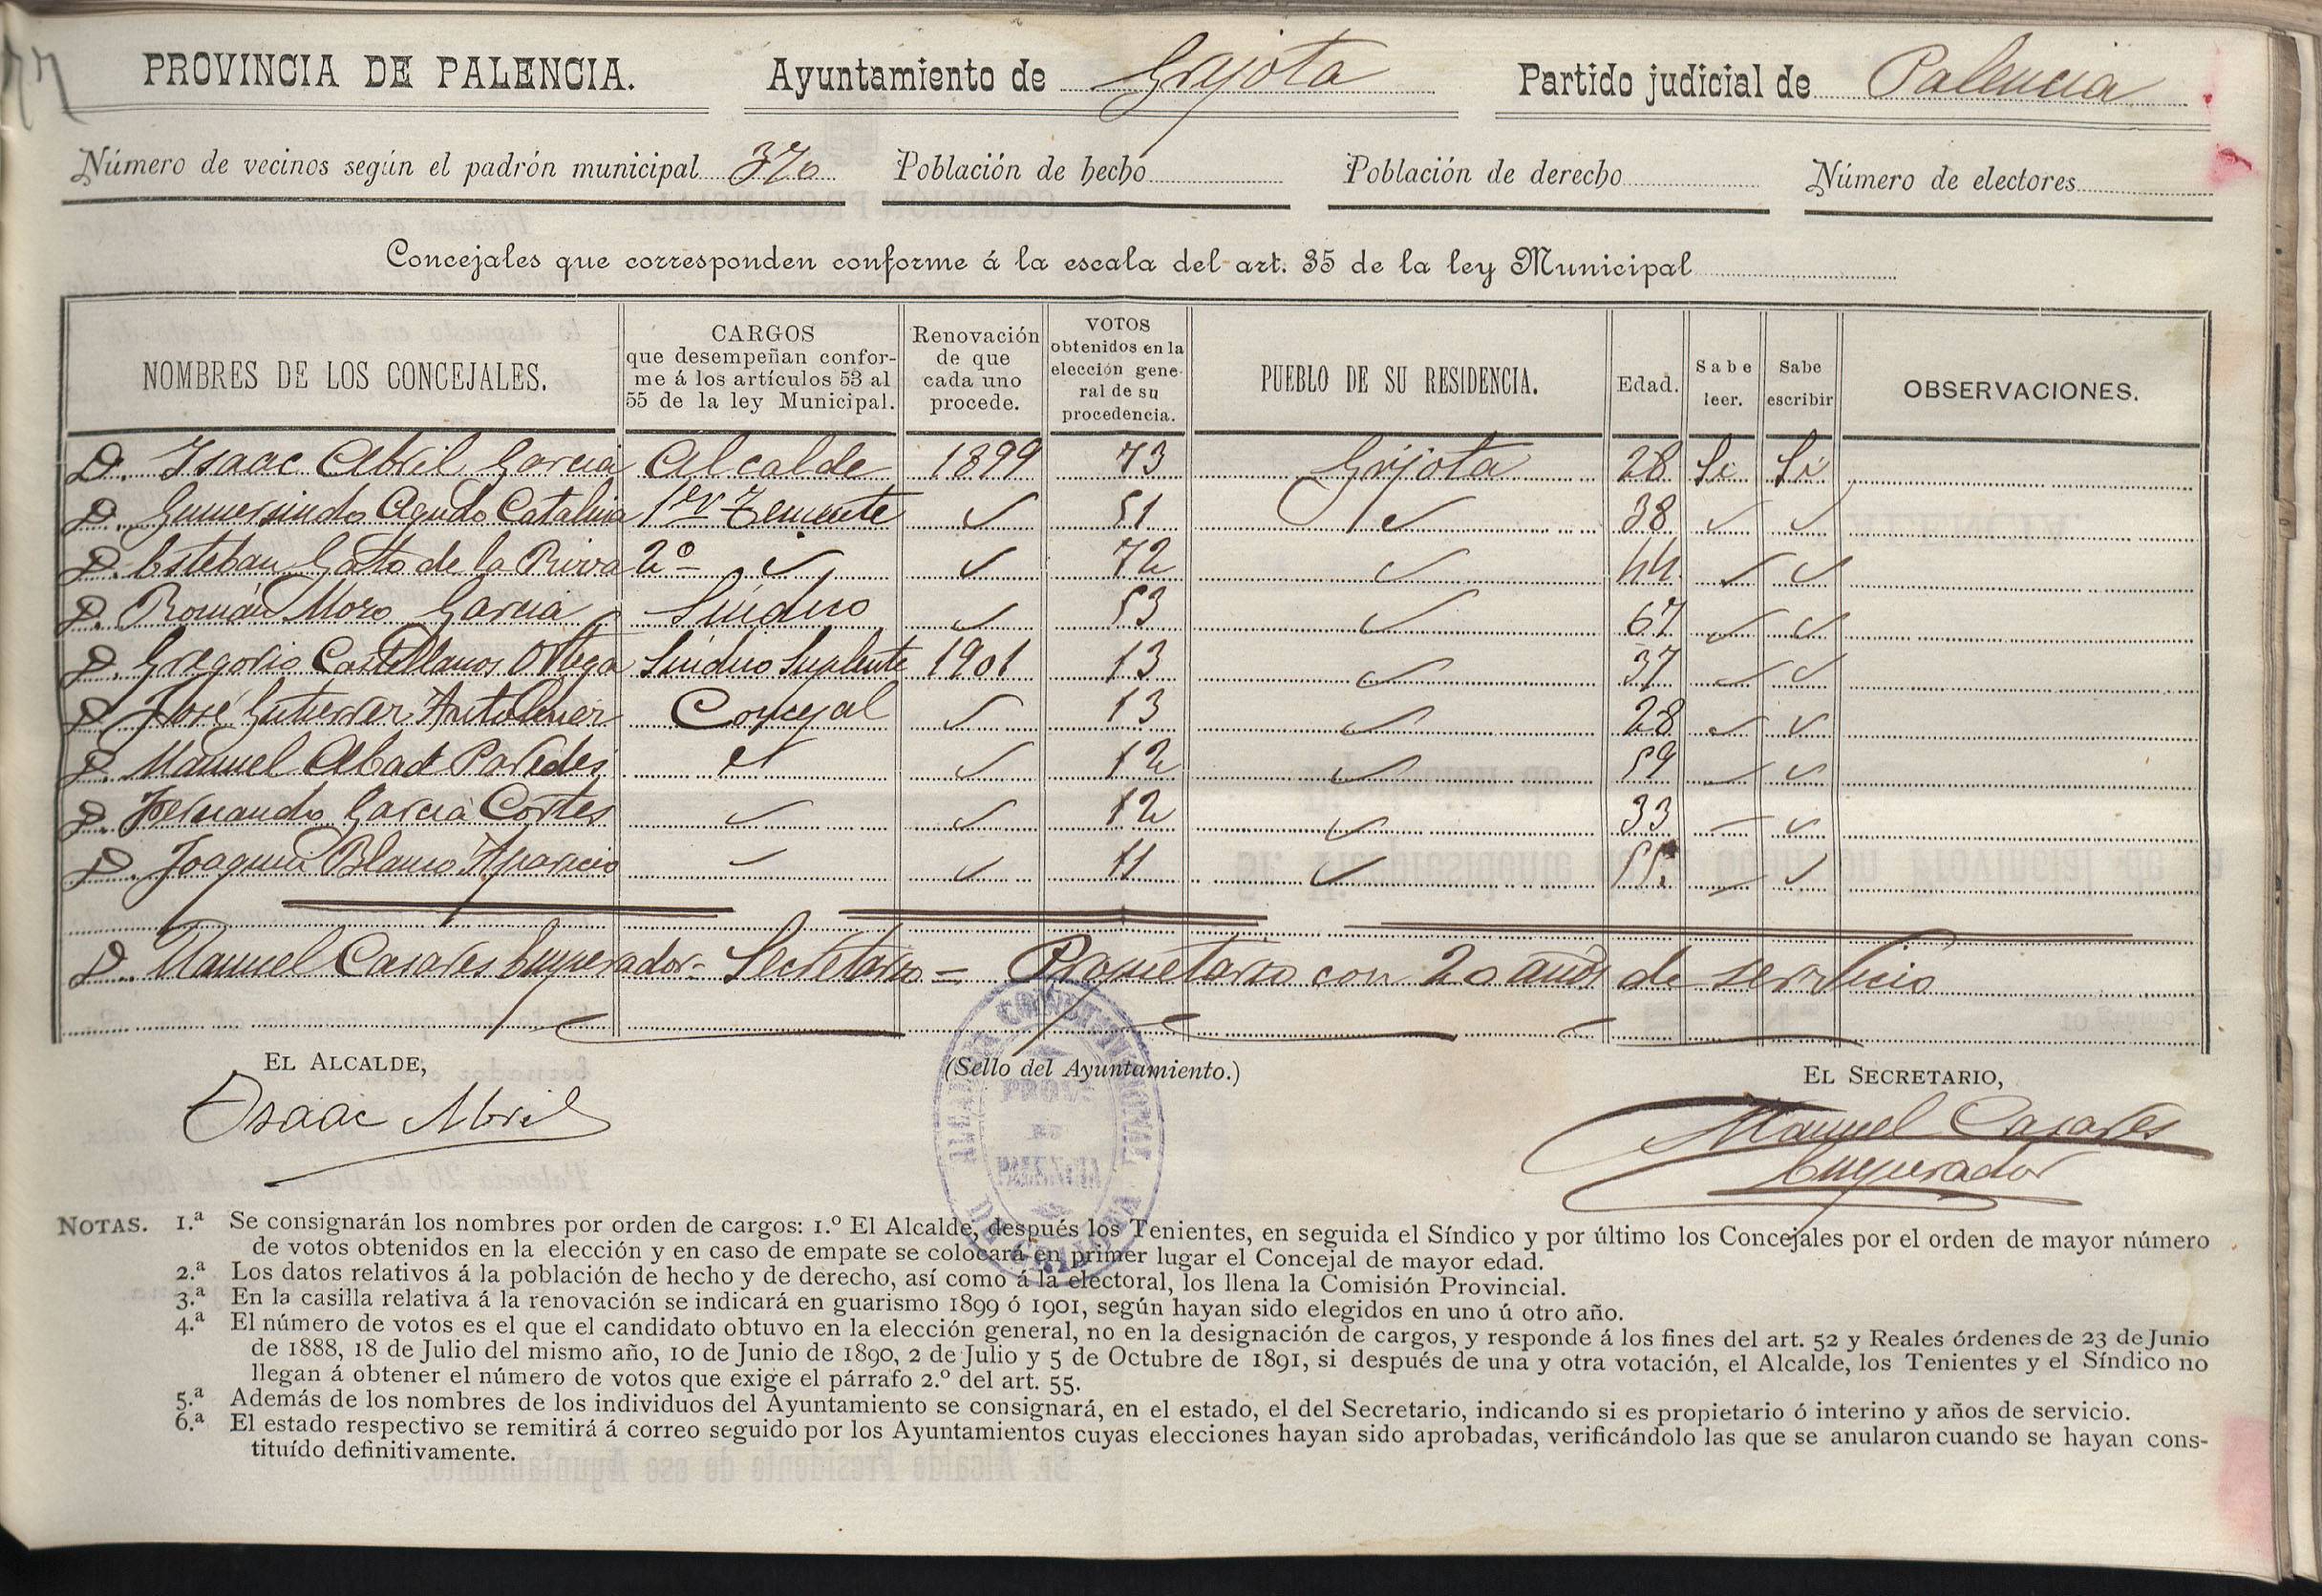 PROVINCIA DE PALENCIA. Ayuntamiento de Grijota Partido judicial de Palencia
Número de vecinos según el padrón municipal 370 Población de hecho Población de derecho Número de electores
Concejales que corresponden conforme á la escala del art. 35 de la ley Municipal
NOMBRES DE LOS CONCEJALES. CARGOS que desempeñan confor- me á los artículos 53 al 55 de la ley Municipal. Renovación de que cada uno procede. VOTOS obtenidos en la elección gene- ral de su procedencia. PUEBLO DE SU RESIDENCIA. Edad. Sabe leer. Sabe escribir OBSERVACIONES.
D. Isaac Abril Garcia Alcalde 1899 73 Grijota 28 Si Si
D. Gumersindo Agudo Catalina 1er Teniente ✓ 51 ✓ 38 ✓ ✓
D. Esteban Gatto de la Riva 2º ✓ ✓ 72 ✓ 44 ✓ ✓
D. Román Moro Garcia Síndico ✓ 53 ✓ 67 ✓ ✓
D. Gregorio Castellanos Ortega Síndico Suplente 1901 13 ✓ 37 ✓ ✓
D. José Gutierrez Antolinez Concejal ✓ 13 ✓ 28 ✓ ✓
D. Manuel Abad Paredes ✓ ✓ 12 ✓ 59 ✓ ✓
D. Fernando Garcia Cortes ✓ ✓ 12 ✓ 33 ✓ ✓
D. Joaquin Blanco Aparicio ✓ ✓ 11 ✓ 55 ✓ ✓
D. Manuel Casares Emperador - Secretario = Propietario con 20 años de servicio
EL ALCALDE, (Sello del Ayuntamiento.) EL SECRETARIO,
Isaac Abril Manuel Casares
Emperador
ALCALDIA CONSTITUCIONAL DE GRIJOTA
PROVª
DE
PALENCIA
NOTAS. 1.ª Se consignarán los nombres por orden de cargos: 1.º El Alcalde, después los Tenientes, en seguida el Síndico y por último los Concejales por el orden de mayor número
de votos obtenidos en la elección y en caso de empate se colocará en primer lugar el Concejal de mayor edad.
2.ª Los datos relativos á la población de hecho y de derecho, así como á la electoral, los llena la Comisión Provincial.
3.ª En la casilla relativa á la renovación se indicará en guarismo 1899 ó 1901, según hayan sido elegidos en uno ú otro año.
4.ª El número de votos es el que el candidato obtuvo en la elección general, no en la designación de cargos, y responde á los fines del art. 52 y Reales órdenes de 23 de Junio
de 1888, 18 de Julio del mismo año, 10 de Junio de 1890, 2 de Julio y 5 de Octubre de 1891, si después de una y otra votación, el Alcalde, los Tenientes y el Síndico no
llegan á obtener el número de votos que exige el párrafo 2.º del art. 55.
5.ª Además de los nombres de los individuos del Ayuntamiento se consignará, en el estado, el del Secretario, indicando si es propietario ó interino y años de servicio.
6.ª El estado respectivo se remitirá á correo seguido por los Ayuntamientos cuyas elecciones hayan sido aprobadas, verificándolo las que se anularon cuando se hayan cons-
tituído definitivamente.